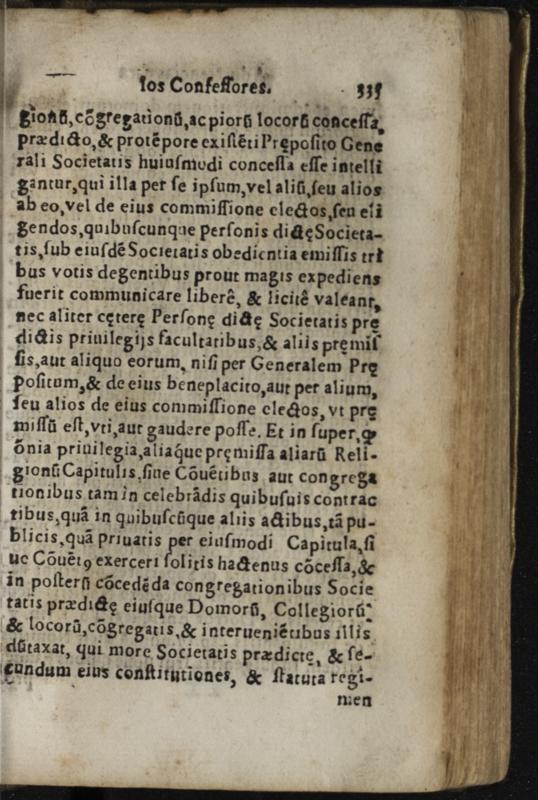 los Confeſſores. 335
gionũ, cõgregationũ, ac piorũ locorũ conceſſa,
prædicto, & protẽpore exiſtẽti Prępoſito Gene
rali Societatis huiuſmodi conceſſa eſſe intelli
gantur, qui illa per ſe ipſum, vel aliũ, ſeu alios
ab eo, vel de eius commiſſione electos, ſeu eli
gendos, quibuſcunque perſonis dictę Societa-
tis, ſub eiuſdẽ Societatis obedientia emiſſis tri
bus votis degentibus prout magis expediens
fuerit communicare liberê, & licitê valeant,
nec aliter cęterę Perſonę dictę Societatis prę
dictis priuilegijs facultatibus, & aliis pręmiſ
ſis, aut aliquo eorum, niſi per Generalem Prę
poſitum, & de eius beneplacito, aut per alium,
ſeu alios de eius commiſſione electos, vt prę
miſſũ eſt, vti, aut gaudere poſſe. Et in ſuper, ꝙ
õnia priuilegia, aliaq́ue pręmiſſa aliarũ Reli-
gionũ Capitulis, ſiue Cõuẽtibus aut congrega
tionibus tam in celebrãdis quibuſuis contrac
tibus, quã in quibuſcũque aliis actibus, tã pu-
blicis, quã priuatis per eiuſmodi Capitula, ſi
ue Cõuẽtꝰ exerceri ſolitis hactenus cõceſſa, &
in poſterũ cõcedẽda congregationibus Socie
tatis prædictę eiuſque Domorũ, Collegiorũ
& locorũ, cõgregatis, & interueniẽtibus illis
dũtaxat, qui more Societatis prædictę, & ſe-
cundum eius conſtitutiones, & ſtatuta regi-
men